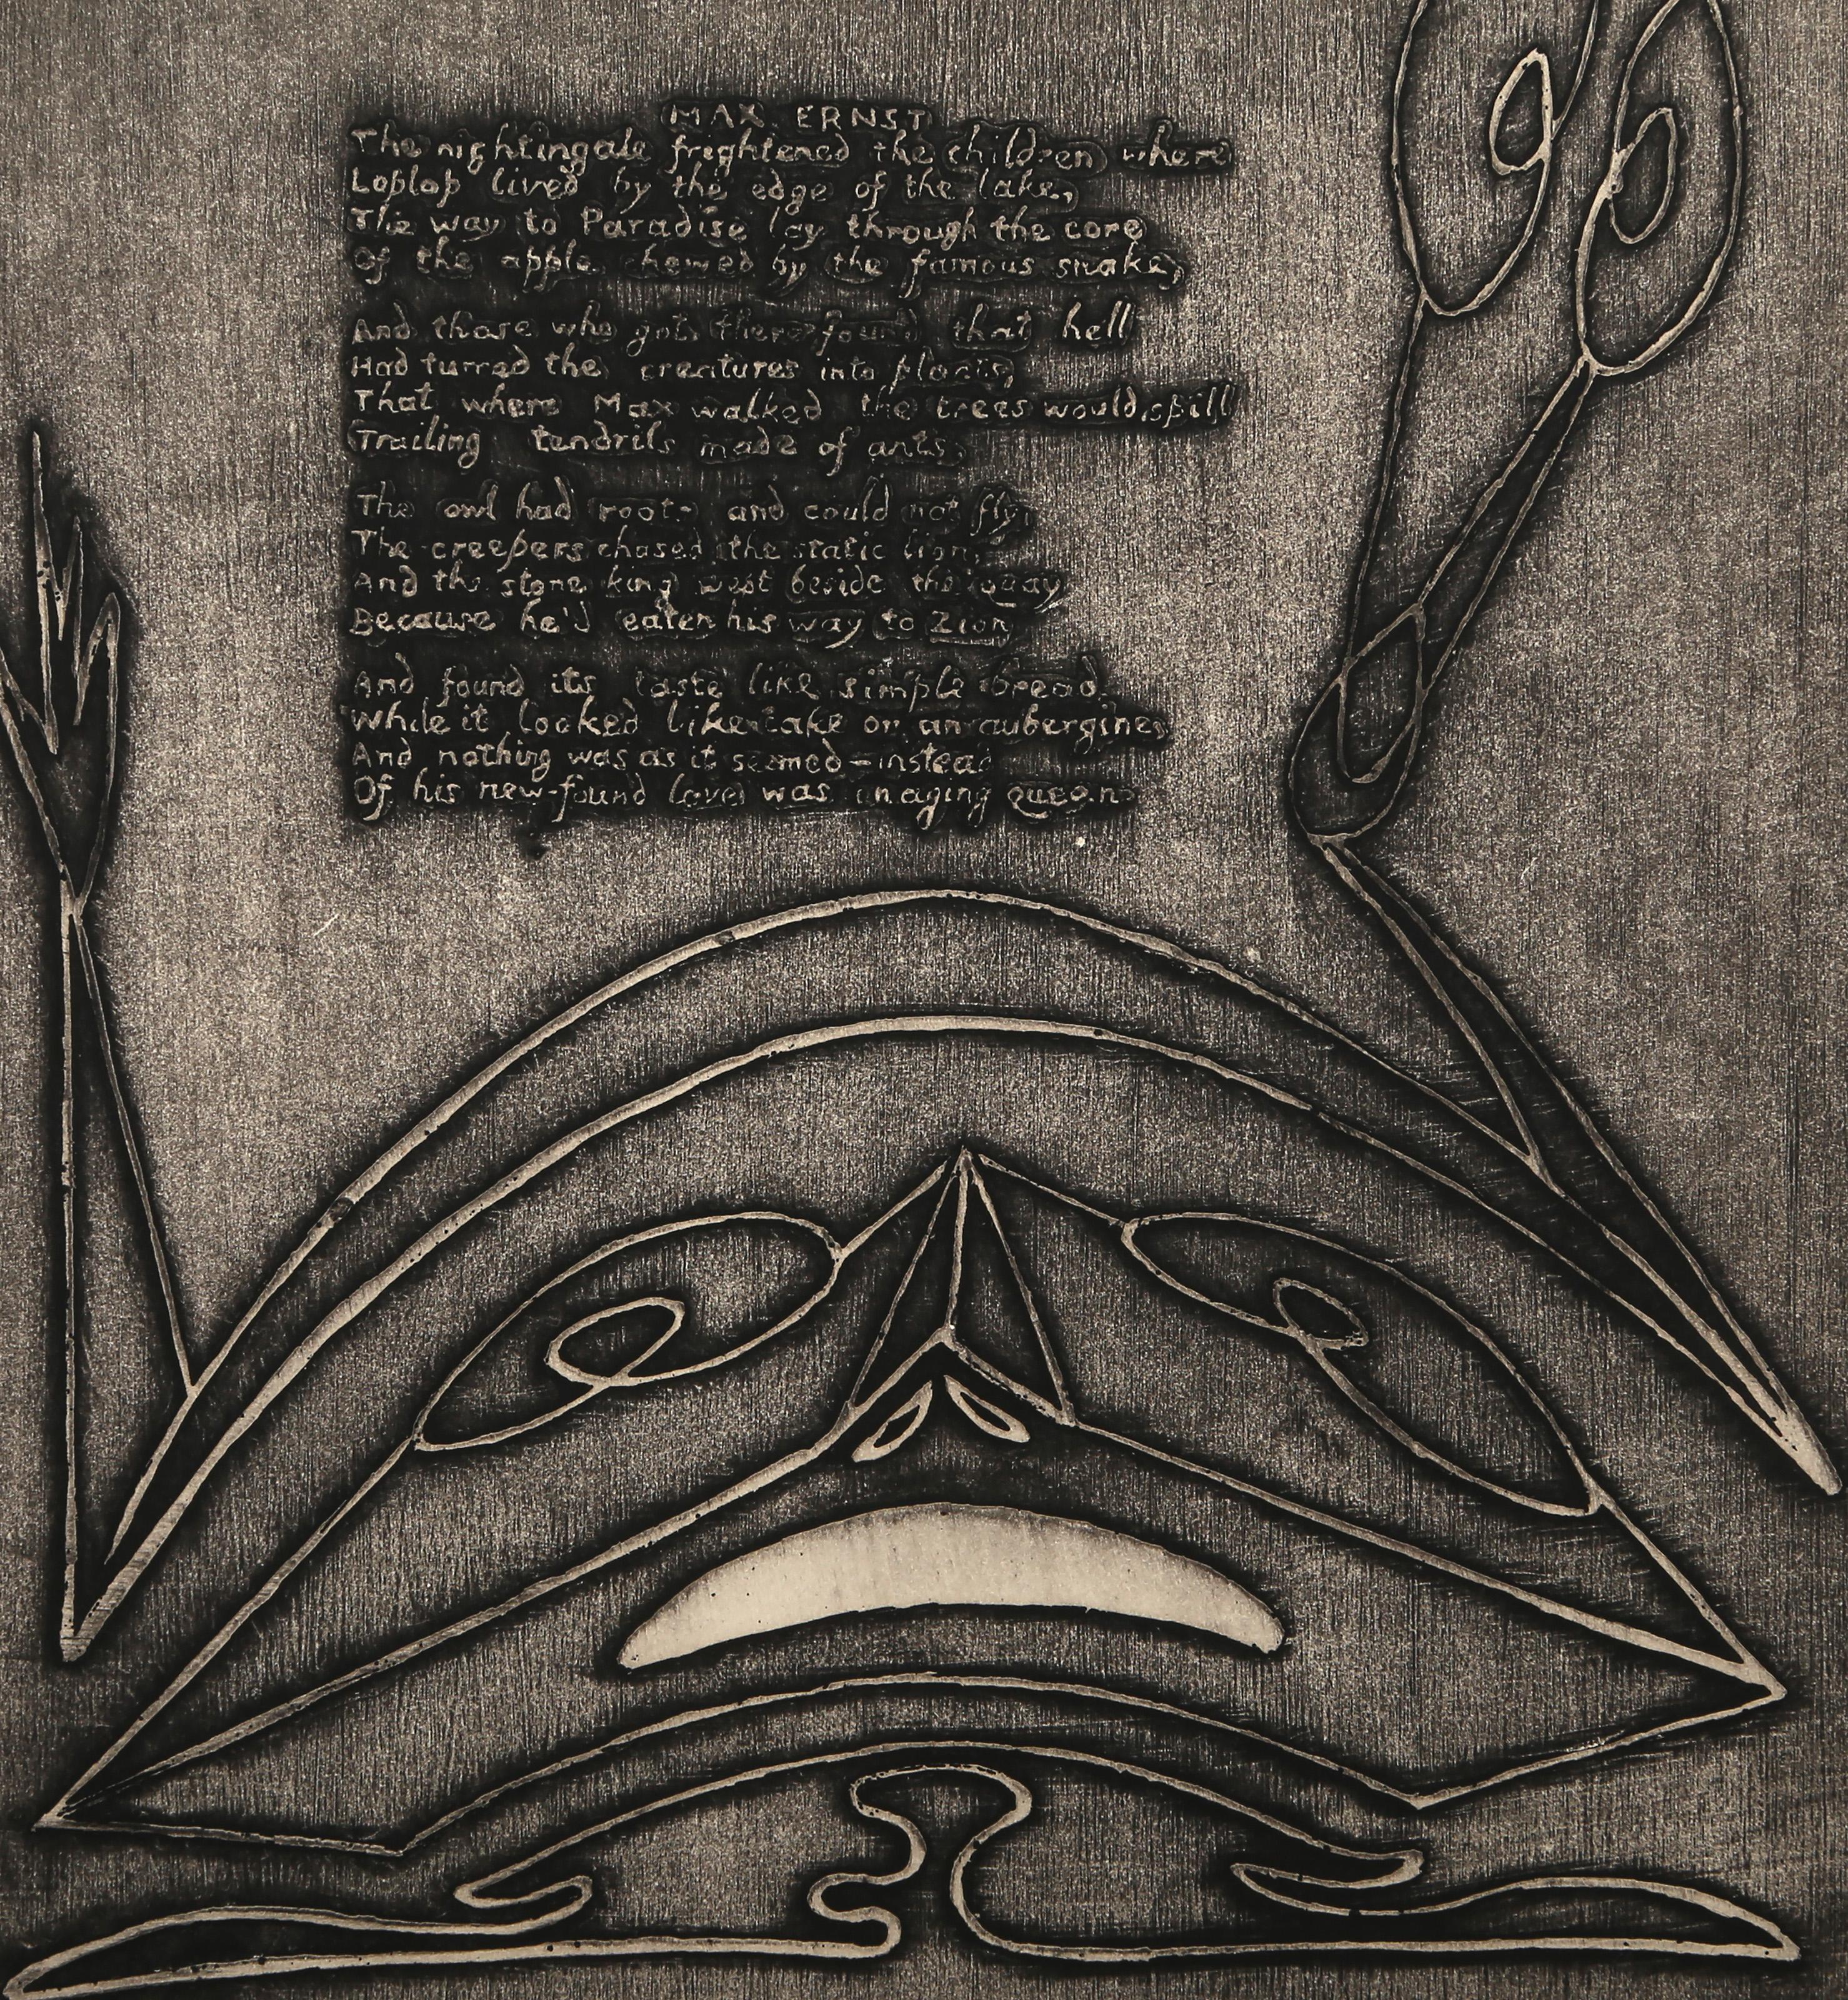 MAX ERNST
The nightingale frightened the children where
Loplop lived by the edge of the lake,
The way to Paradise lay through the core
Of the apple chewed by the famous snake,
And those who got there found that hell
Had turned the creatures into plants,
That where Max walked the trees would spill
Trailing tendrils made of ants,
The owl had roots and could not fly,
The creepers chased the static lion,
And the stone king wept beside the quay
Because he'd eaten his way to Zion,
And found its taste like simple bread,
While it looked like cake or an aubergine,
And nothing was as it seemed - instead
Of his new-found love was an aging queen.